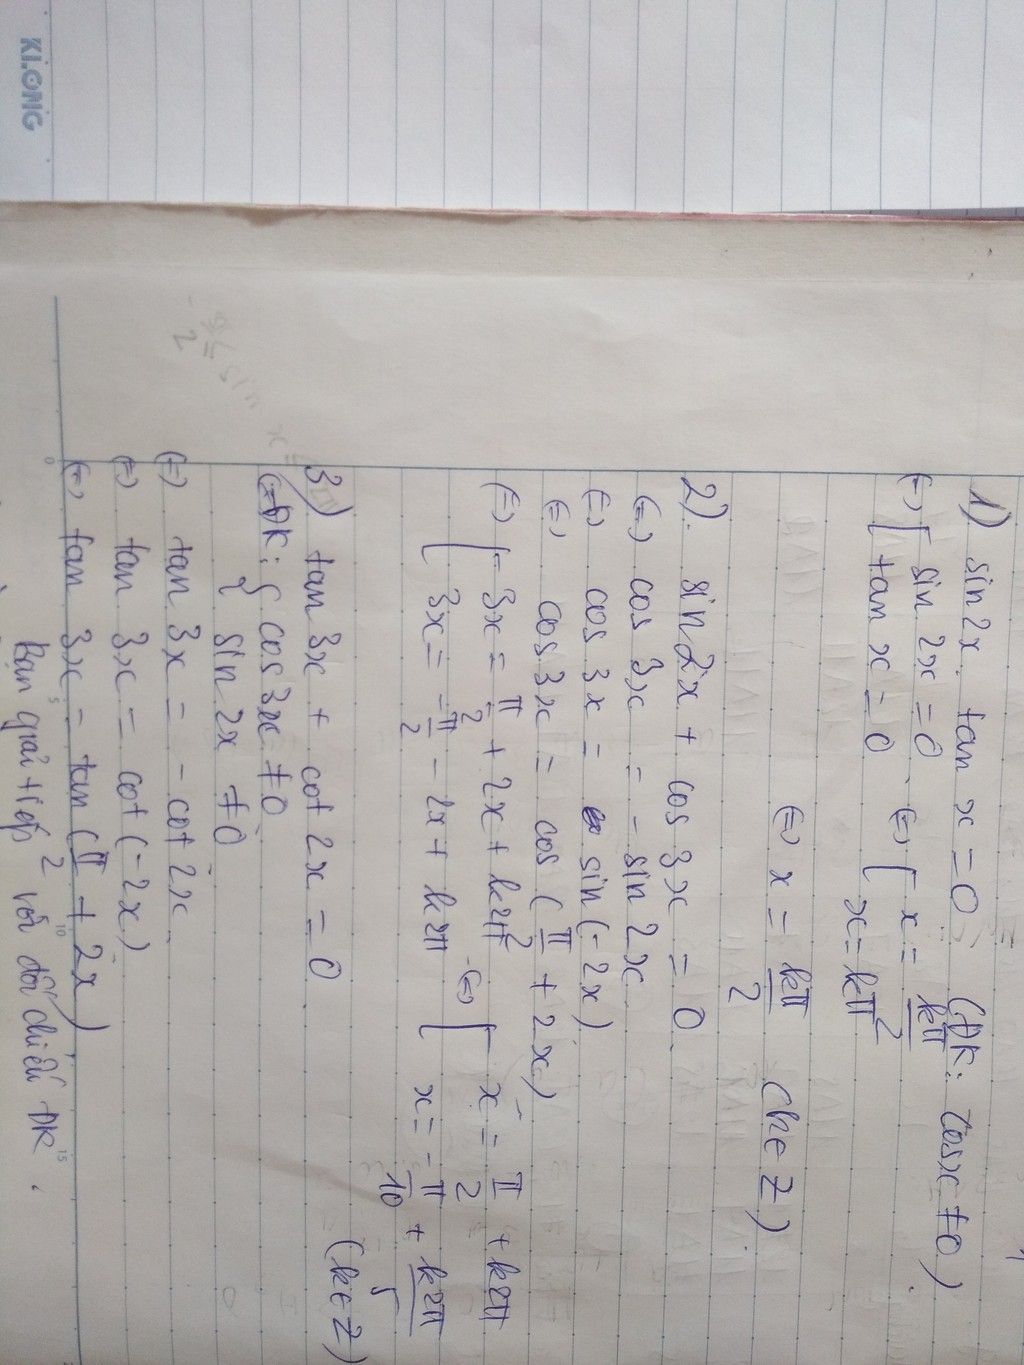 KI.ONG
1) sin 2x. tan x = 0 (ĐK: cosx ≠ 0)
(=) [ sin 2x = 0 (=) [ x = kπ/2
[ tan x = 0 x = kπ
(=) x = kπ/2 (k ∈ Z)
2). sin 2x + cos 3x = 0
(=) cos 3x = - sin 2x
(=) cos 3x = sin(-2x)
(=) cos 3x = cos (π/2 + 2x)
(=) [ 3x = π/2 + 2x + k2π (=) [ x = π/2 + k2π
[ 3x = -π/2 - 2x + k2π [ x = -π/10 + k2π/5
(k ∈ Z)
3) tan 3x + cot 2x = 0
ĐK: { cos 3x ≠ 0
{ sin 2x ≠ 0
(=) tan 3x = - cot 2x
(=) tan 3x = cot (-2x)
(=) tan 3x = tan (π/2 + 2x)
Bạn giải tiếp với đối chiếu ĐK.